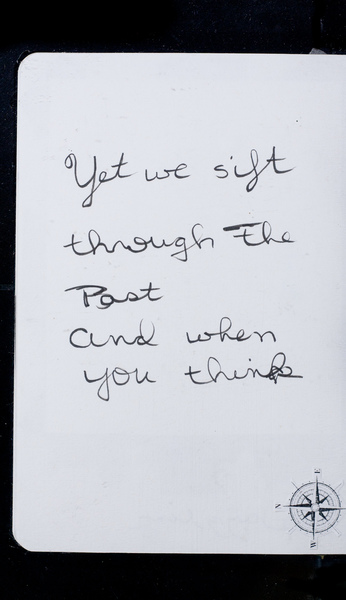 Yet we sift
through The
Past
and when
you think
E
N
W